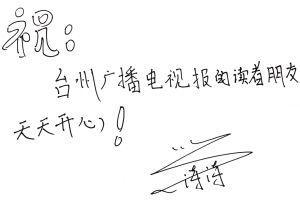 祝：
台州广播电视报的读者朋友
天天开心！